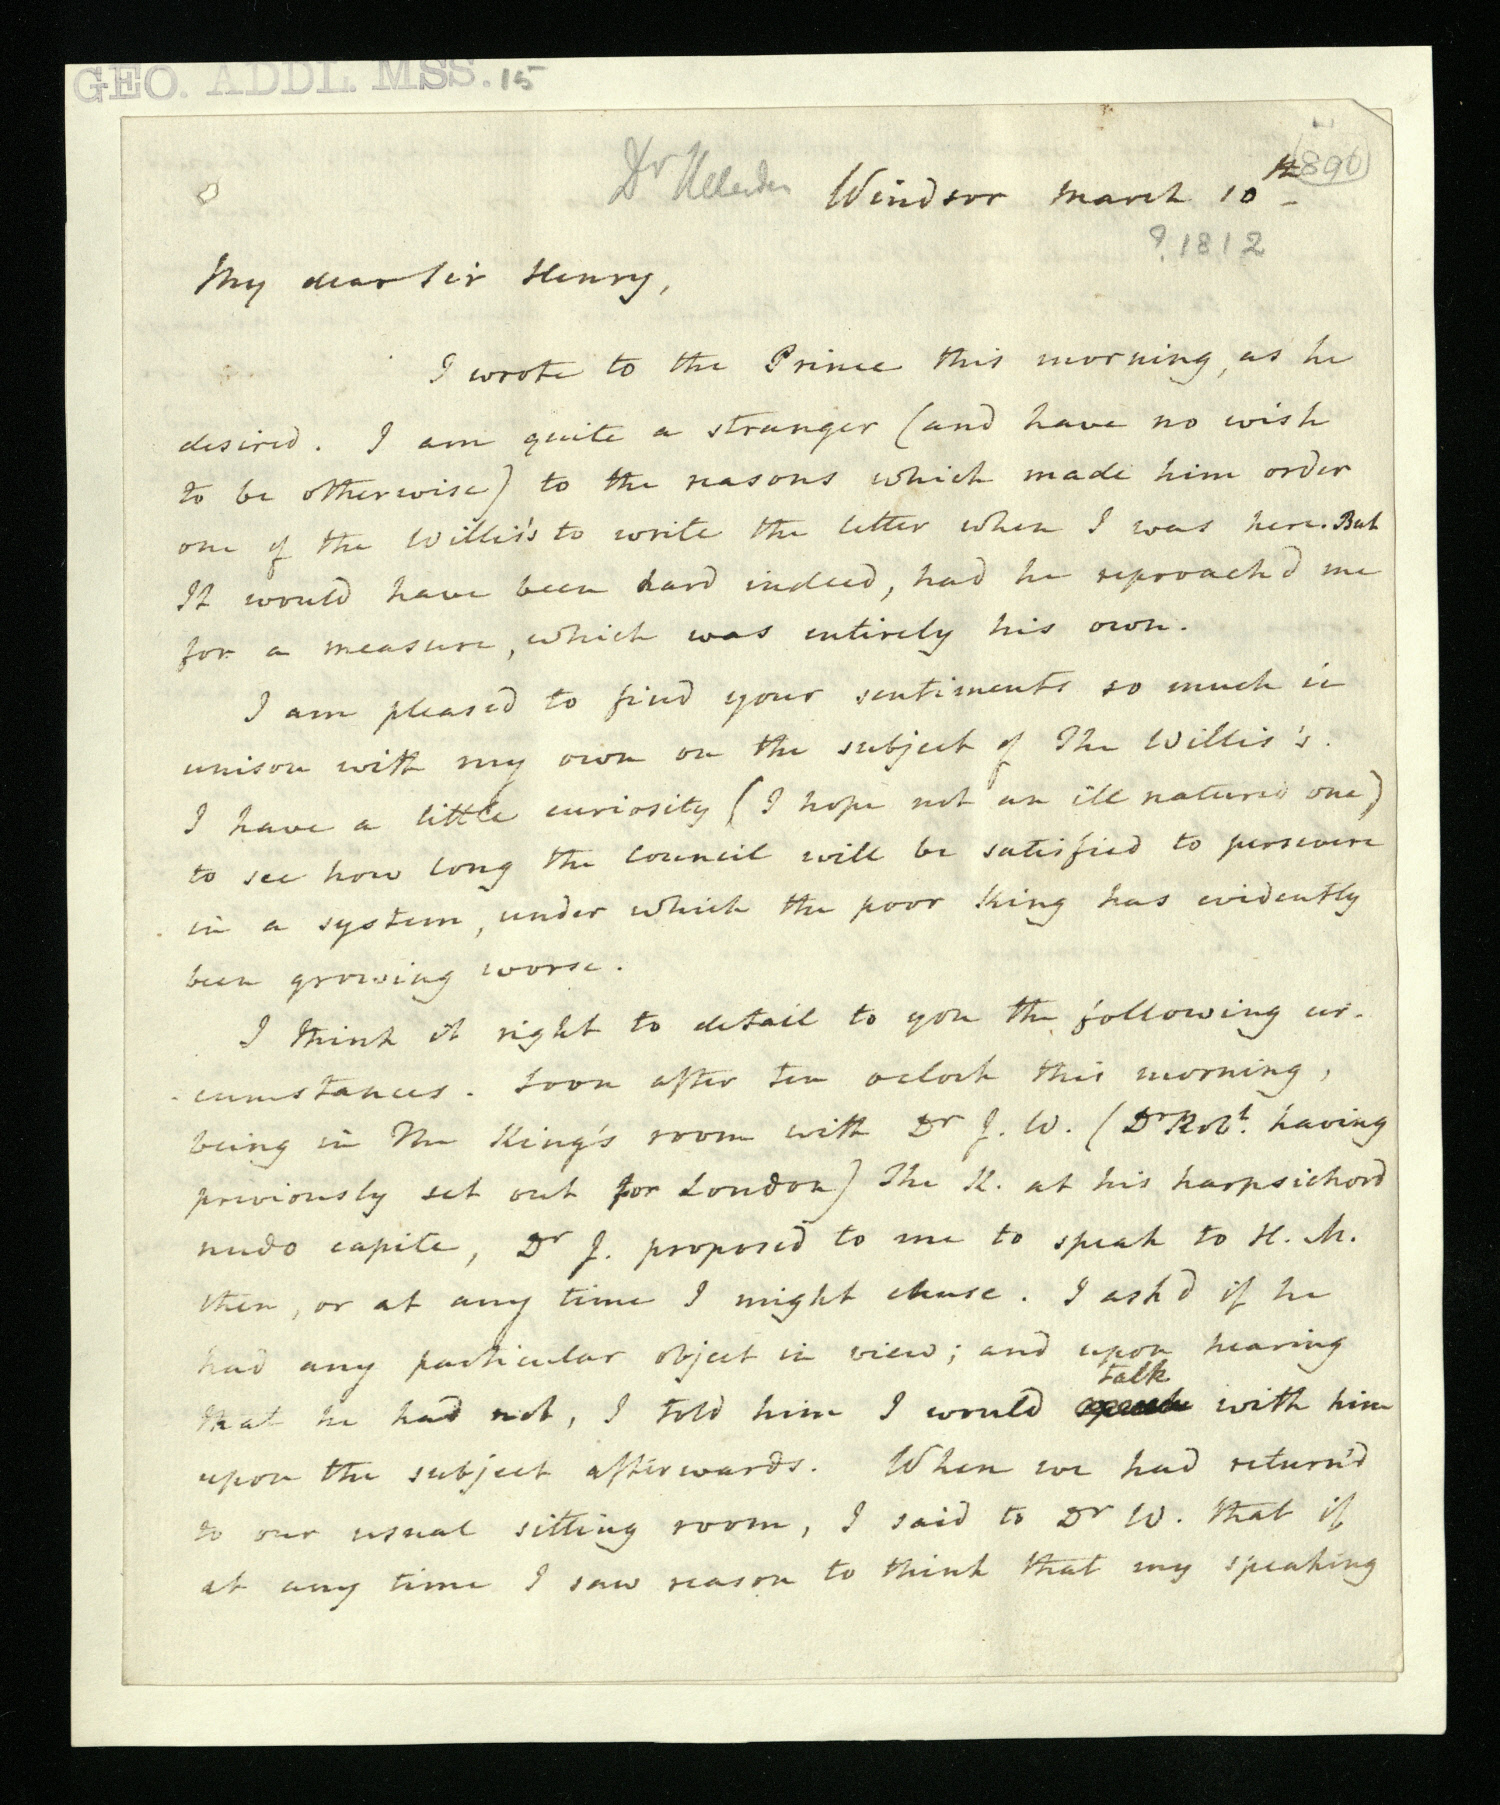 GEO. ADDL. MSS. 15
890
Dr Heberden Windsor March 10th
? 1812
My dear Sir Henry,
I wrote to the Prince this morning, as he
desired. I am quite a stranger (and have no wish
to be otherwise) to the reasons which made him order
one of the Willis's to write the letter when I was here. But
It would have been hard indeed, had he reproach'd me
for a measure, which was entirely his own.
I am pleased to find your sentiments so much in
unison with my own on the subject of The Willis's.
I have a little curiosity (I hope not an ill natured one)
to see how long the Council will be satisfied to persevere
in a system, under which the poor King has evidently
been growing worse.
I think it right to detail to you the following cir-
cumstances. Soon after ten oclock this morning,
being in The King's room with Dr J. W. (Dr Robt. having
previously set out for London) The K. at his harpsichord
nudo capite, Dr J. proposed to me to speak to H. M.
then, or at any time I might chuse. I ask'd if he
had any particular object in view; and upon hearing
talk
that he had not, I told him I would with him
upon the subject afterwards. When we had return'd
to our usual sitting room, I said to Dr W. that if
at any time I saw reason to think that my speaking